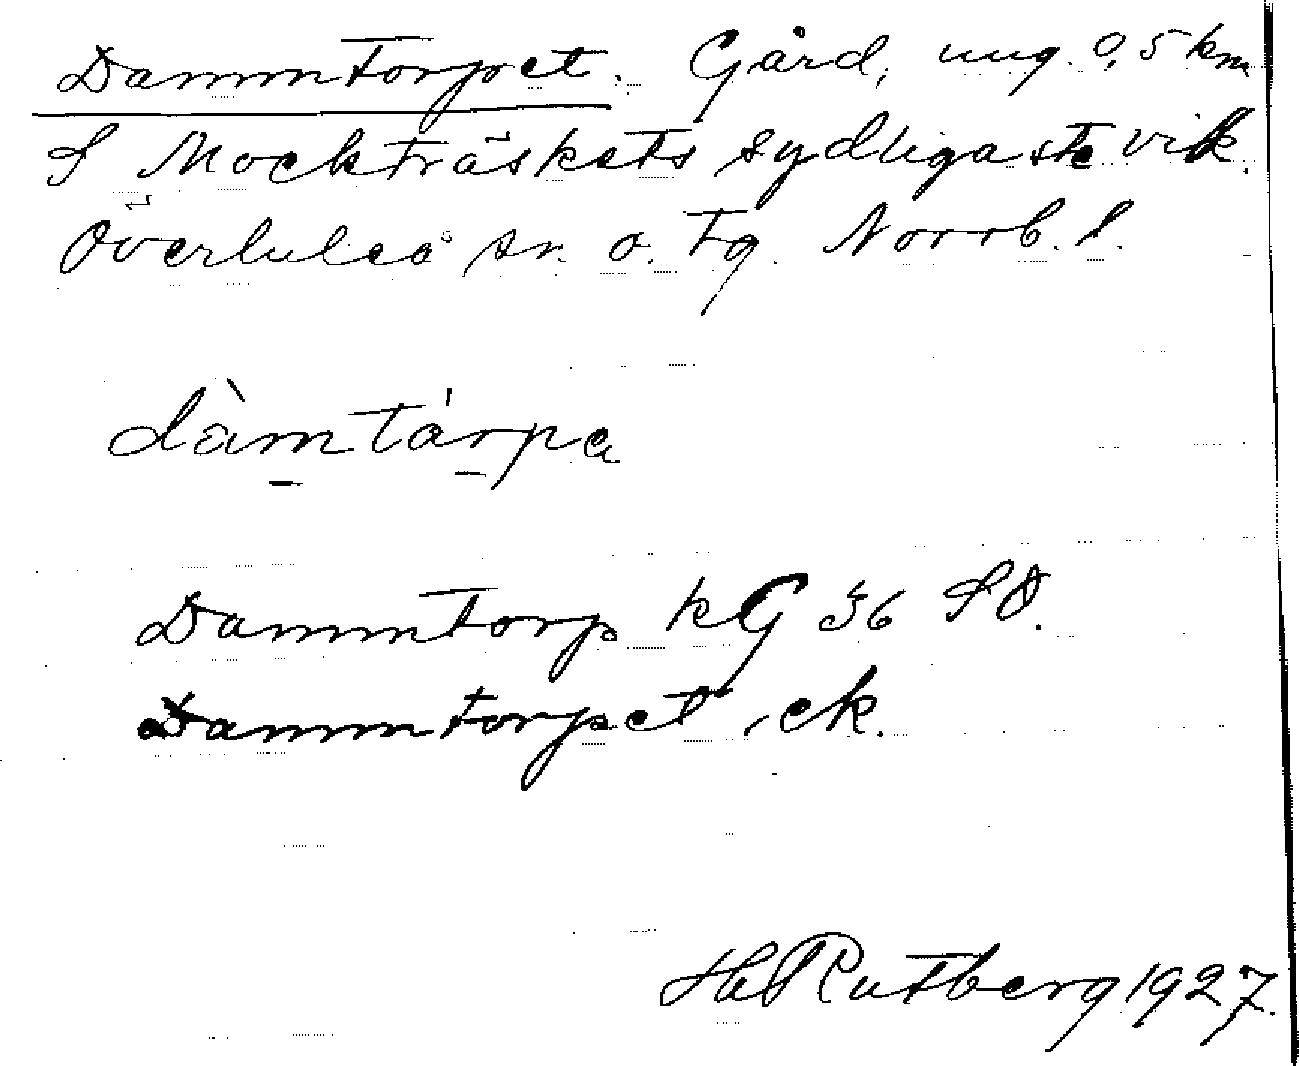 Dammtorpet. Gård, ung. 0,5 km
S Mockträskets sydligaste vik.
Överluleå sn. o. tg. Norrb. l.
dàmtárpa
Dammtorp kG 36 SO.
Dammtorpet, ek.
H Rutberg 1927.